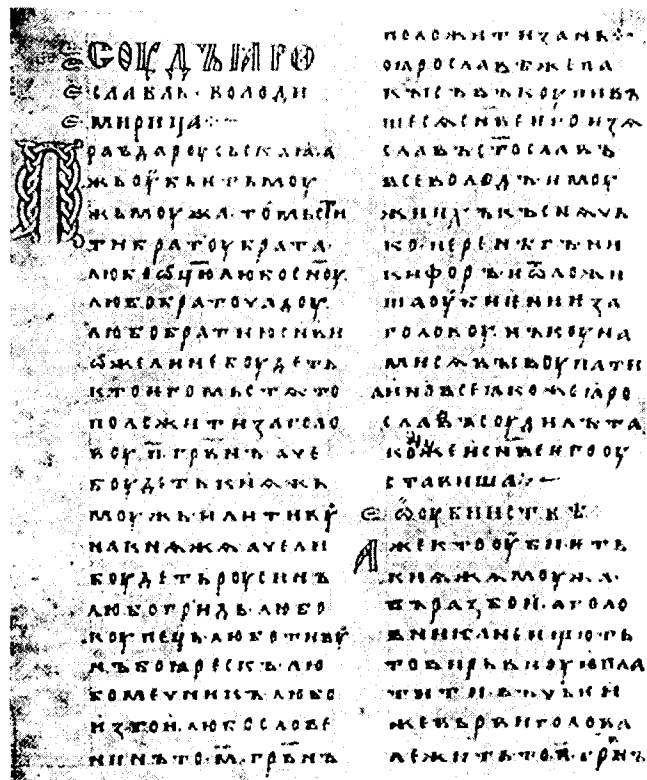 СОУДЪꙖРО
СЛАВЛЬ·ВОЛОДИ
МИРИЦА⁘~
Правдароусьскаꙗ·а
жьоубьѥтьмоу
жьмоужа·томьсти
тибратоубрата·
любоѡц҃ю·любосн҃оу·
любобратоучадоу·
любобратнюсн҃ви
ѡжелинебоудеть
ктоѥгомьстѧ·то
положитизаголо
воу·п҃·грв҃нъ·аче
боудетькнѧжь
моужь·илитиву
накнѧжѧ·ачели
боудетьроусинъ
любогридь·любо
коупець·люботиву
нъбоꙗрескъ·лю
бомечникъ·любо
изгои·любослове
нинъ·то·м҃·грв҃нъ
положитизань⁘
поꙗрославѣжепа
кысъвъкоупивъ
шесѧсн҃веѥгоизѧ
славъст҃ославъ
всеволодъ·имоу
жиихъ·късн·ѧчь
ко·перенѣгъ·ни
кифоръ·иѿложи
шаоубиѥниеза
головоу·нъкоуна
мисѧвыкоупати
аиновсеꙗкожеꙗро
славъсоудилъта
кожеисн҃веѥгооу
ставиша⁘~
Ѡоубииствѣ
Ажектооубиѥть
кнѧжамоужа·
въразбои·аголо
вниканеищють
товирьвноуюпла
тити·въчьѥи
жевьрвиголова
лежитьто·п҃·грв҃нъ